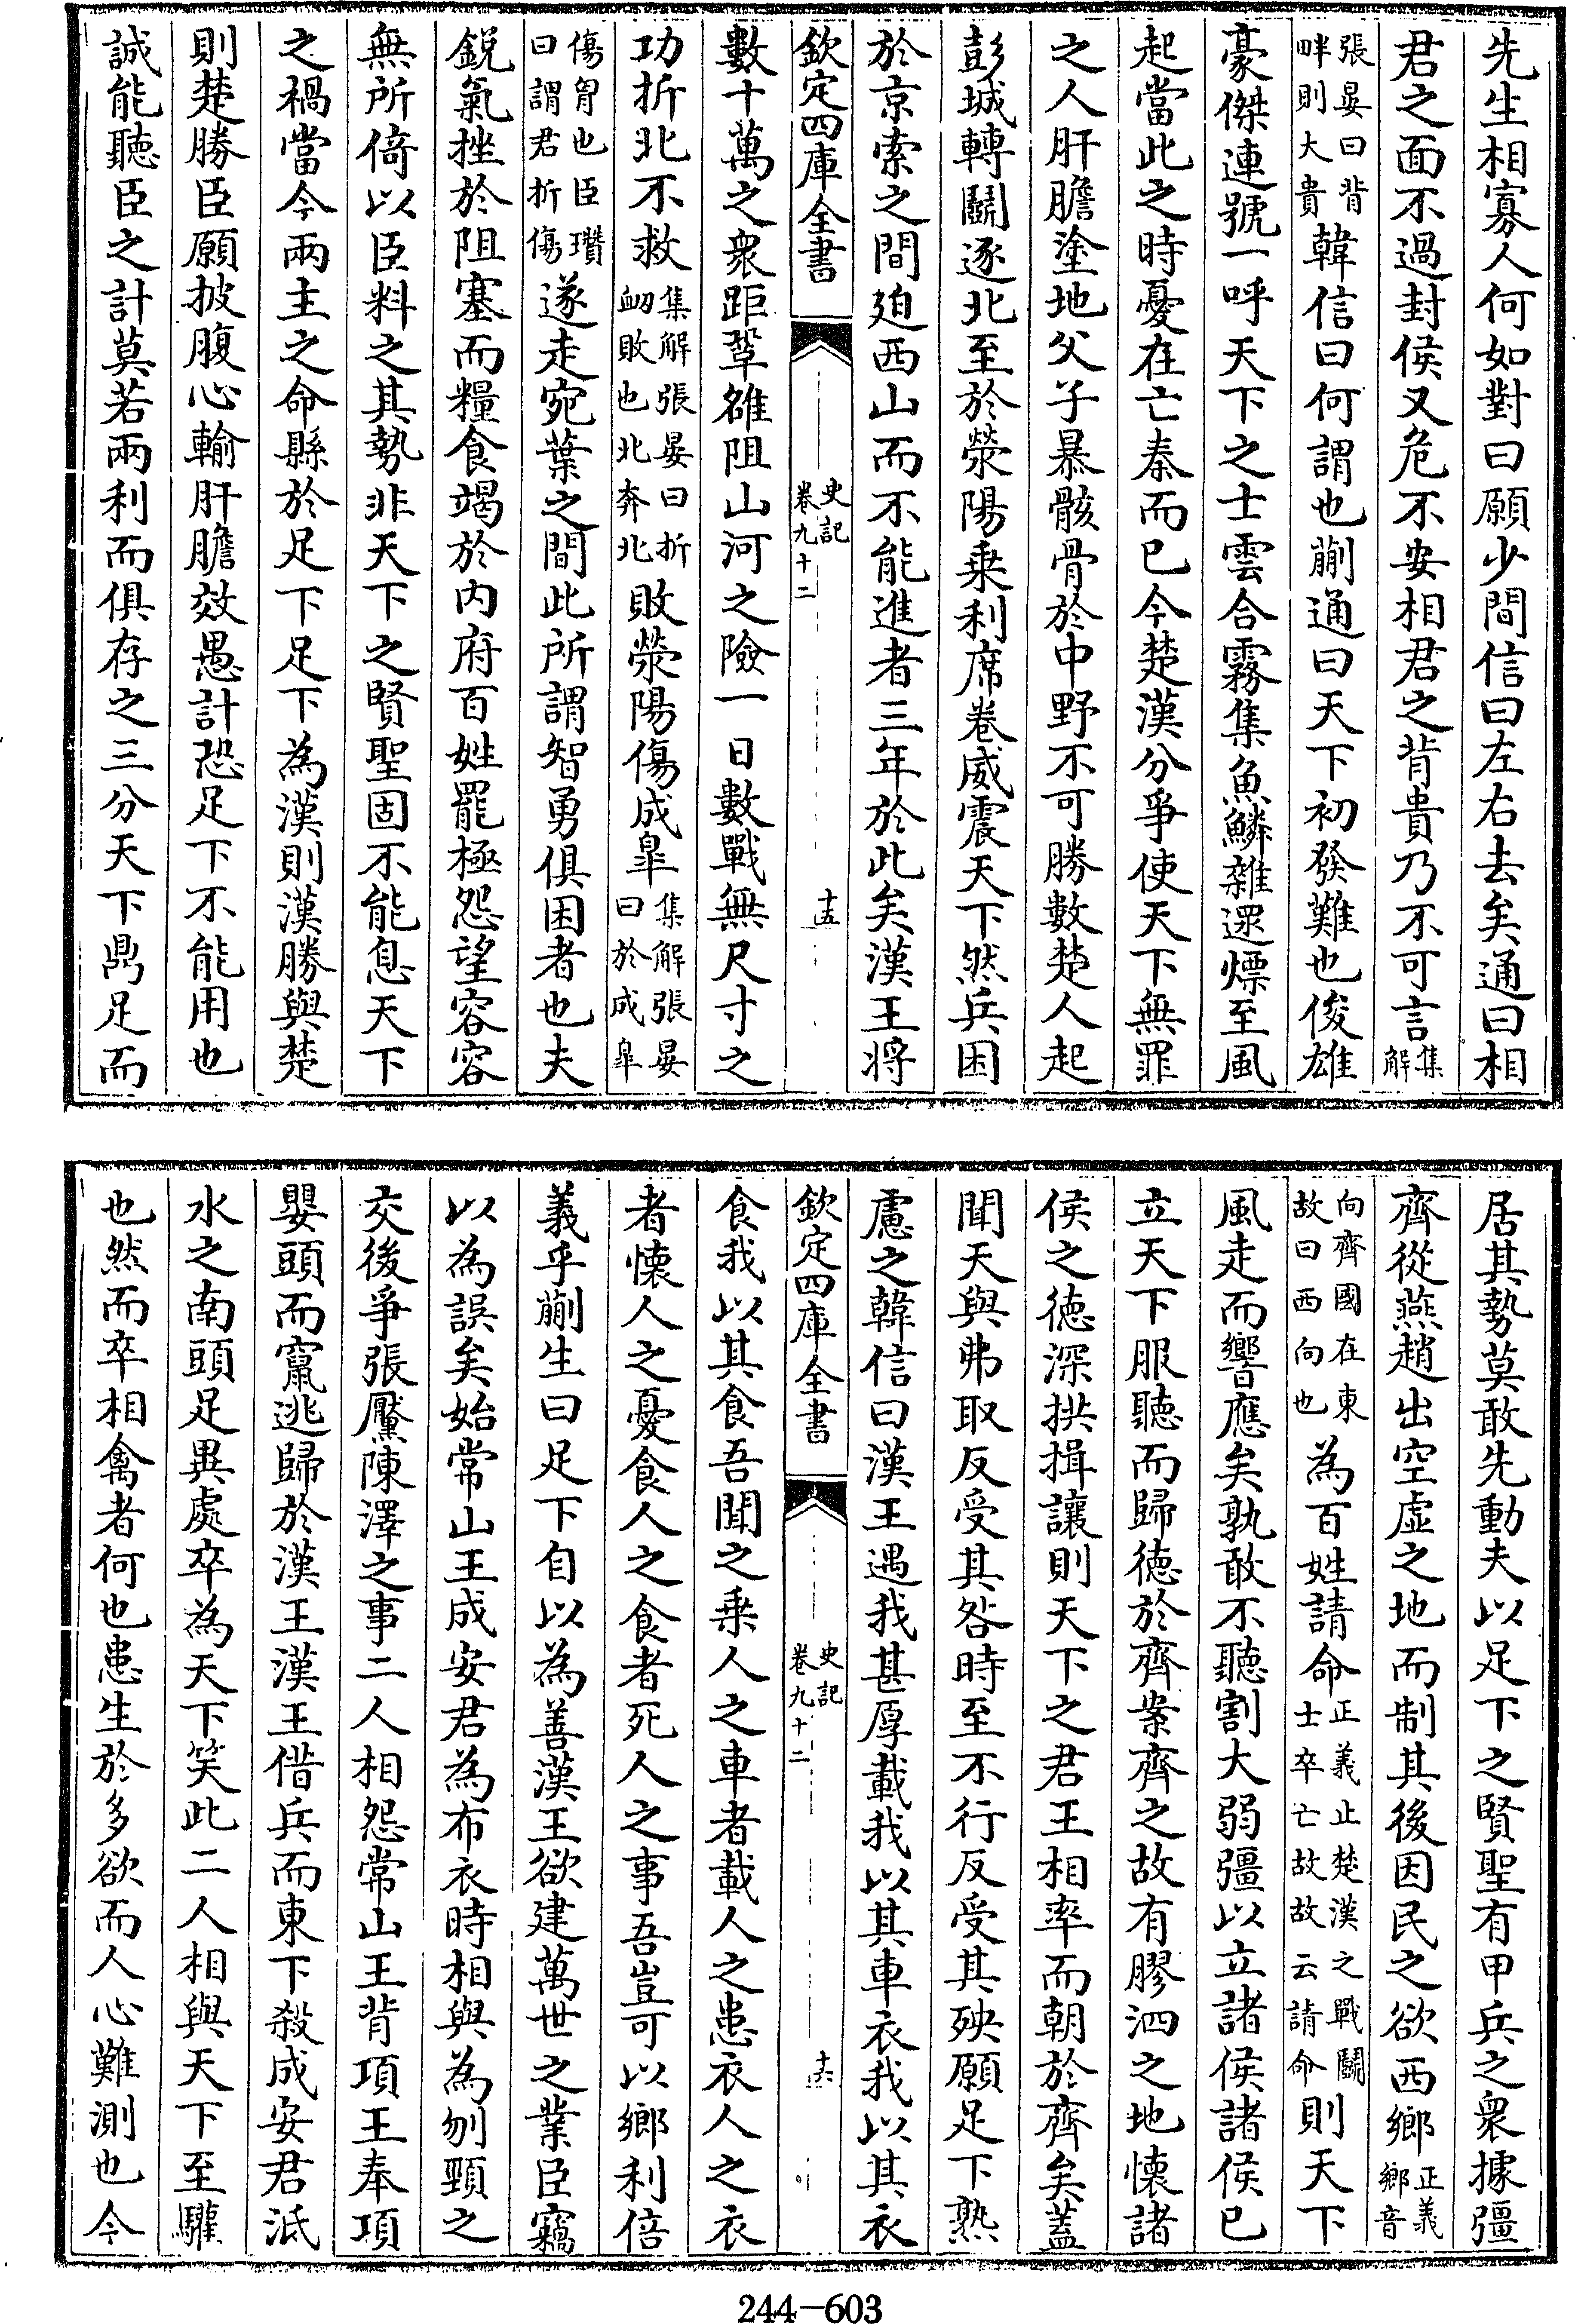 先生相寡人何如對曰願少間信曰左右去矣通曰相
君之面不過封侯又危不安相君之背貴乃不可言集解
張晏曰背畔則大貴韓信曰何謂也蒯通曰天下初發難也俊雄
豪傑連號一呼天下之士雲合霧集魚鱗雜遝熛至風
起當此之時憂在亡秦而已今楚漢分爭使天下無罪
之人肝膽塗地父子暴骸骨於中野不可勝數楚人起
彭城轉鬭逐北至於滎陽乗利席卷威震天下然兵困
於京索之間廹西山而不能進者三年於此矣漢王将
欽定四庫全書 史記卷九十二 十五
數十萬之衆距鞏雒阻山河之險一日數戰無尺寸之
功折北不救集解張晏曰折衂敗也北奔北敗滎陽傷成皐集解張晏曰於成皐
傷胷也臣瓚曰謂君折傷遂走宛葉之間此所謂智勇俱困者也夫
鋭氣挫於阻塞而糧食竭於内府百姓罷極怨望容容
無所倚以臣料之其勢非天下之賢聖固不能息天下
之禍當今兩主之命縣於足下足下為漢則漢勝與楚
則楚勝臣願披腹心輸肝膽效愚計恐足下不能用也
誠能聽臣之計莫若兩利而俱存之三分天下鼎足而
居其勢莫敢先動夫以足下之賢聖有甲兵之衆據彊
齊從燕趙出空虚之地而制其後因民之欲西鄉正義鄉音
向齊國在東故曰西向也為百姓請命正義止楚漢之戰鬭士卒亡故故云請命則天下
風走而響應矣孰敢不聽割大弱彊以立諸侯諸侯已
立天下服聽而歸徳於齊案齊之故有膠泗之地懷諸
侯之徳深拱揖讓則天下之君王相率而朝於齊矣蓋
聞天與弗取反受其咎時至不行反受其殃願足下熟
慮之韓信曰漢王遇我甚厚載我以其車衣我以其衣
欽定四庫全書 史記卷九十二 十六
食我以其食吾聞之乗人之車者載人之患衣人之衣
者懷人之憂食人之食者死人之事吾豈可以鄉利倍
義乎蒯生曰足下自以為善漢王欲建萬世之業臣竊
以為誤矣始常山王成安君為布衣時相與為刎頸之
交後爭張黶陳澤之事二人相怨常山王背項王奉項
嬰頭而竄逃歸於漢王漢王借兵而東下殺成安君泜
水之南頭足異處卒為天下笑此二人相與天下至驩
也然而卒相禽者何也患生於多欲而人心難測也今
244—603